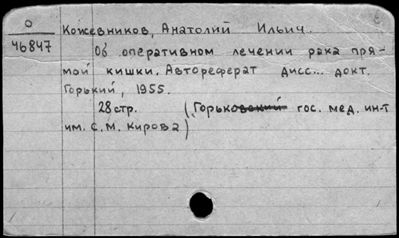 О
46847
Кожевников, Анатолий Ильич.
Об оперативном лечении рака пря-
мой кишки. Автореферат дисс... докт.
Горький, 1955.
28 стр. (Горьковский гос. мед. ин-т
им. С. М. Кирова)